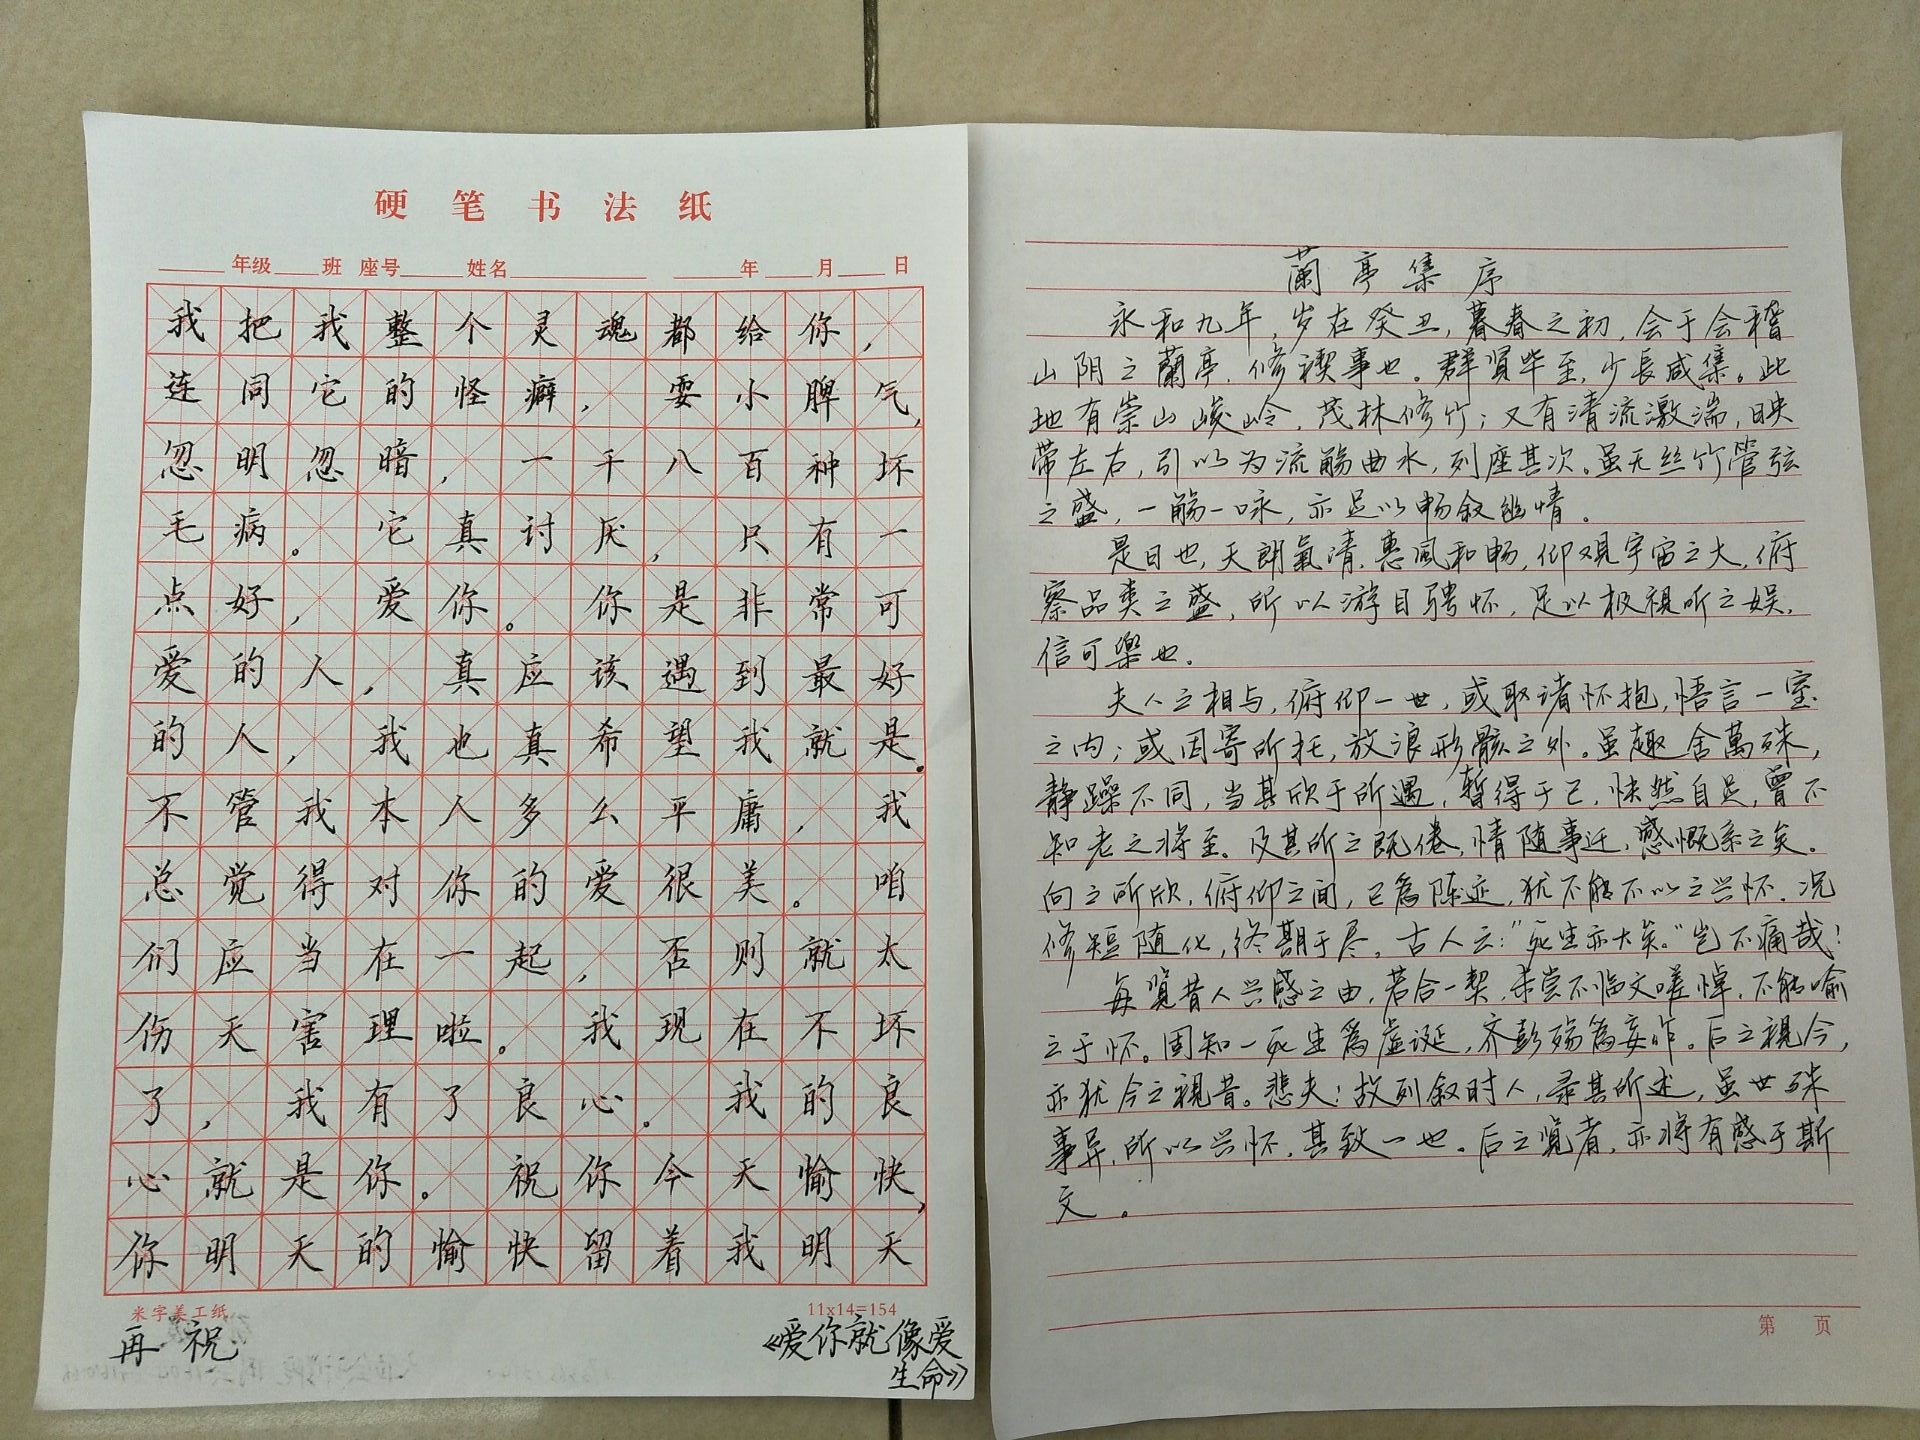 硬笔书法纸
年级 班 座号 姓名 年 月 日
我把我整个灵魂都给你，
连同它的怪癖，耍小脾气，
忽明忽暗，一千八百种坏
毛病。它真讨厌，只有一
点好，爱你。你是非常可
爱的人，真应该遇到最好
的人，我也真希望我就是。
不管我本人多么平庸，我
总觉得对你的爱很美。咱
们应当在一起，否则就太
伤天害理啦。我现在不坏
了，我有了良心。我的良
心就是你。祝你今天愉快，
你明天的愉快留着我明天
米字美工纸 11x14=154
再祝
《爱你就像爱
生命》
蘭亭集序
永和九年，岁在癸丑，暮春之初，会于会稽
山阴之蘭亭，修禊事也。群贤毕至，少長咸集。此
地有崇山峻岭，茂林修竹；又有清流激湍，映
带左右，引以为流觞曲水，列座其次。虽无丝竹管弦
之盛，一觞一咏，亦足以畅叙幽情。
是日也，天朗氣清，惠風和畅，仰观宇宙之大，俯
察品类之盛，所以游目骋怀，足以极視听之娱，
信可樂也。
夫人之相与，俯仰一世，或取诸怀抱，悟言一室
之内；或因寄所托，放浪形骸之外。虽趣舍萬殊，
静躁不同，当其欣于所遇，暂得于己，快然自足，曾不
知老之将至。及其所之既倦，情随事迁，感慨系之矣。
向之所欣，俯仰之间，已為陈迹，犹不能不以之兴怀。况
修短随化，终期于尽，古人云：“死生亦大矣。”岂不痛哉！
每览昔人兴感之由，若合一契，未尝不临文嗟悼，不能喻
之于怀。固知一死生為虚诞，齐彭殇為妄作。后之視今，
亦犹今之視昔。悲夫！故列叙时人，录其所述，虽世殊
事异，所以兴怀，其致一也。后之览者，亦将有感于斯
文。
第 页